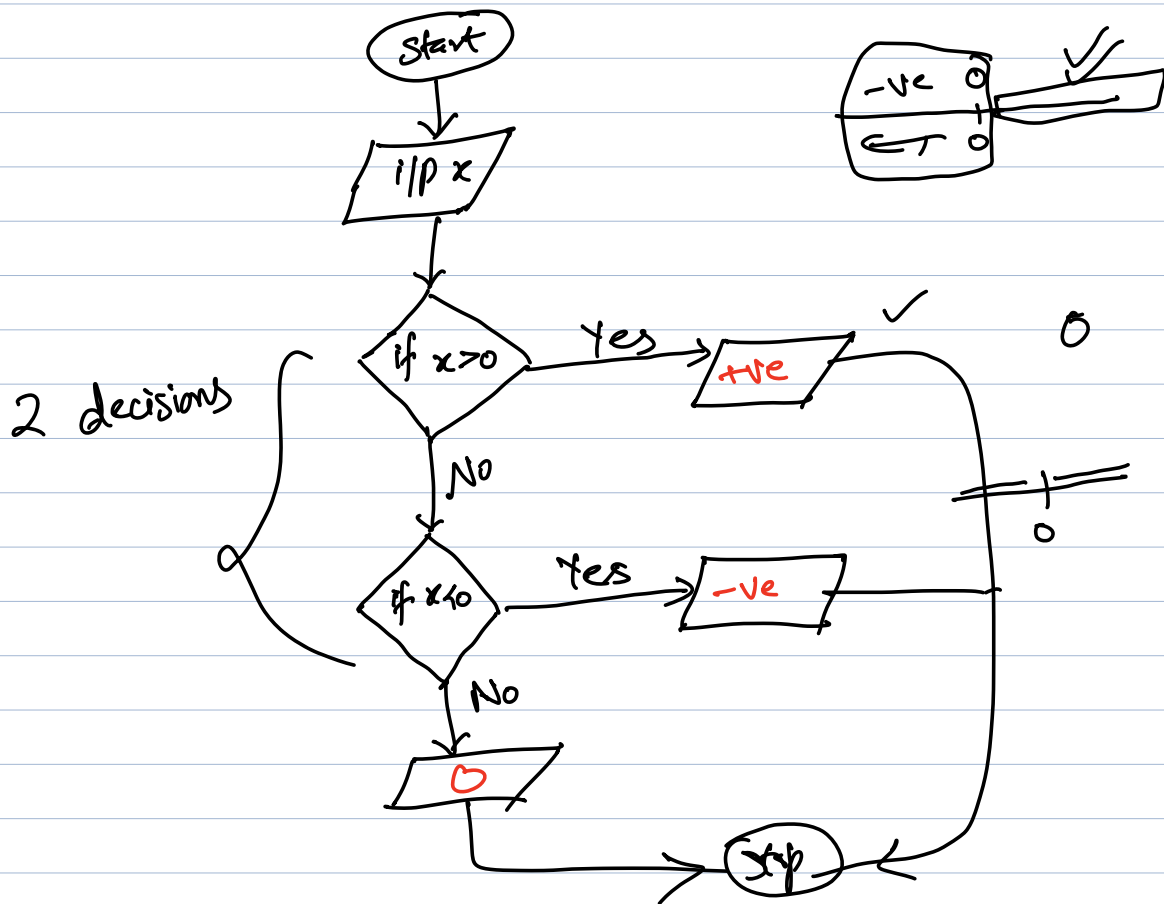 start
-ve 0
0
i/p x
if x>0
Yes
+ve
0
2 decisions
No
0
if x<0
Yes
-ve
No
0
Stop